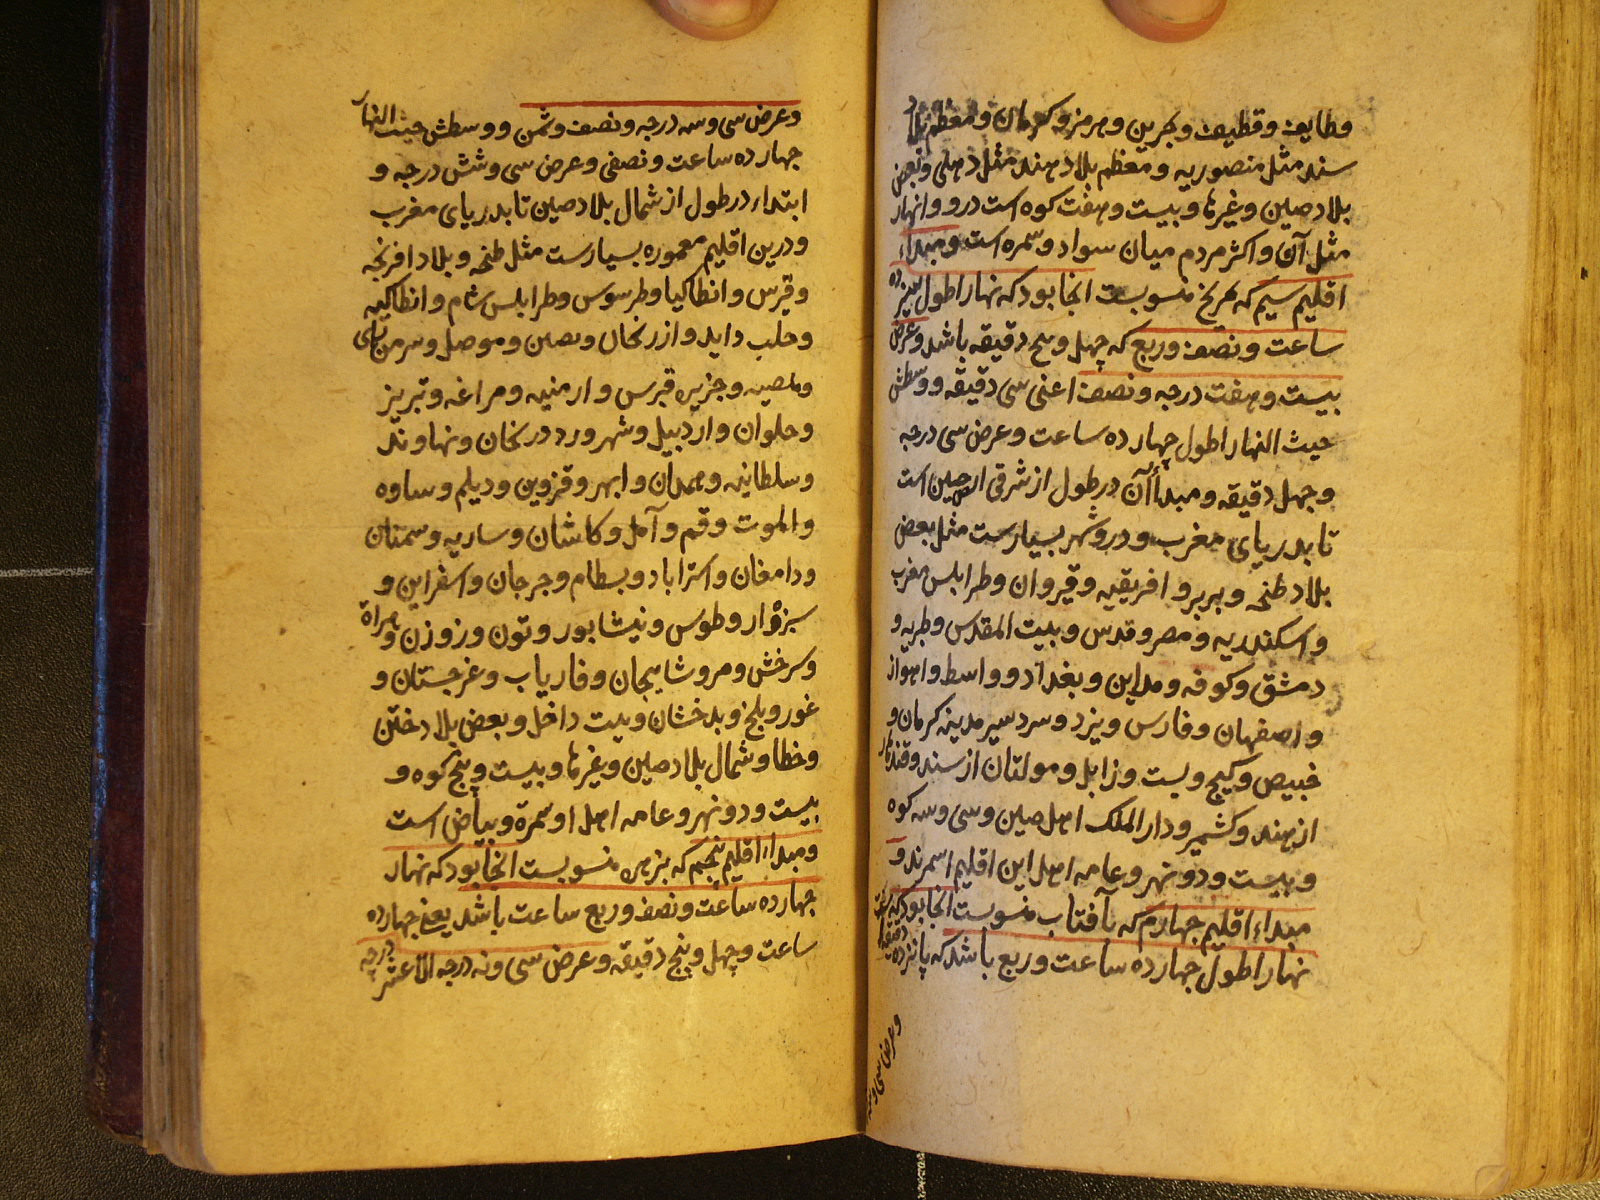 وطایف و قطیف و بحرین و هرمز و کرمان و معظم بلاد
سند مثل منصوریه و معظم بلاد هند مثل دهلی و بعض
بلاد صین و غیرها و بیست و هفت کوه است درو و انهار
مثل آن و اکثر مردم میان سواد و سمره است و مبداء
اقلیم سیم که بمریخ منسوبست انجا بود که نهار اطول سیزده
ساعت و نصف و ربع که چهل و پنج دقیقه باشد و عرض
بیست و هفت درجه و نصف اعنی سی دقیقه و وسطش
حیث النهار اطول چهارده ساعت و عرض سی درجه
و چهل دقیقه و مبداء آن در طول از شرقی ارض صین است
تا بدریای مغرب و درو شهر بسیارست مثل بعض
بلاد طنجه و بربر و افریقیه و قیروان و طرابلس مغرب
و اسکندریه و مصر و قدس و بیت المقدس و طبریه و
دمشق و کوفه و مداین و بغداد و واسط و اهواز
و اصفهان و فارس و یزد و سردسیر مدینه کرمان و
خبیص و کیج و بست و زابل و مولتان از سند و قندهار
از هند و کشمیر و دار الملک اهل صین و سی و سه کوه
و بیست و دو نهر و عامه اهل این اقلیم اسمرند و
مبداء اقلیم چهارم که بآفتاب منسوبست انجا بود که
نهار اطول چهارده ساعت و ربع باشد که پانزده دقیقه
وعرض سی و سه
وعرض سی و سه درجه و نصف و ثمن و وسطش حیث النهار
چهارده ساعت و نصفی و عرض سی و شش درجه و
ابتداء در طول از شمال بلاد صین تا بدریای مغرب
و درین اقلیم معموره بسیارست مثل طنجه و بلاد افرنجه
و قبرس و انطاکیا و طرسوس و طرابلس شام و انطاکیه
و حلب و ارزنجان و نصیبین و موصل و سرمن رای
و جزیره قبرس و ارمنیه و مراغه و تبریز
و حلوان و اردبیل و شهرورد و نهاوند
و سلطانیه و همدان و ابهر و قزوین و دیلم و ساوه
و الموت و قم و آمل و کاشان و ساریه و سمنان
و دامغان و استراباد و بسطام و جرجان و اسفراین و
سبزوار و طوس و نیشابور و تون و زوزن و هراة
و سرخس و مرو شاهیجان و فاریاب و غرجستان و
غور و بلخ و بدخشان و تبت داخل و بعض بلاد ختن
و خطا و شمال بلاد صین و غیرها و بیست و پنج کوه و
بیست و دو نهر و عامه اهل او سمرة و بیاض است
و مبداء اقلیم پنجم که بزهره منسوبست انجا بود که نهار
چهارده ساعت و نصف و ربع ساعت باشد یعنی چهارده
ساعت و چهل و پنج دقیقه و عرض سی و نه درجه الا عشر درجه